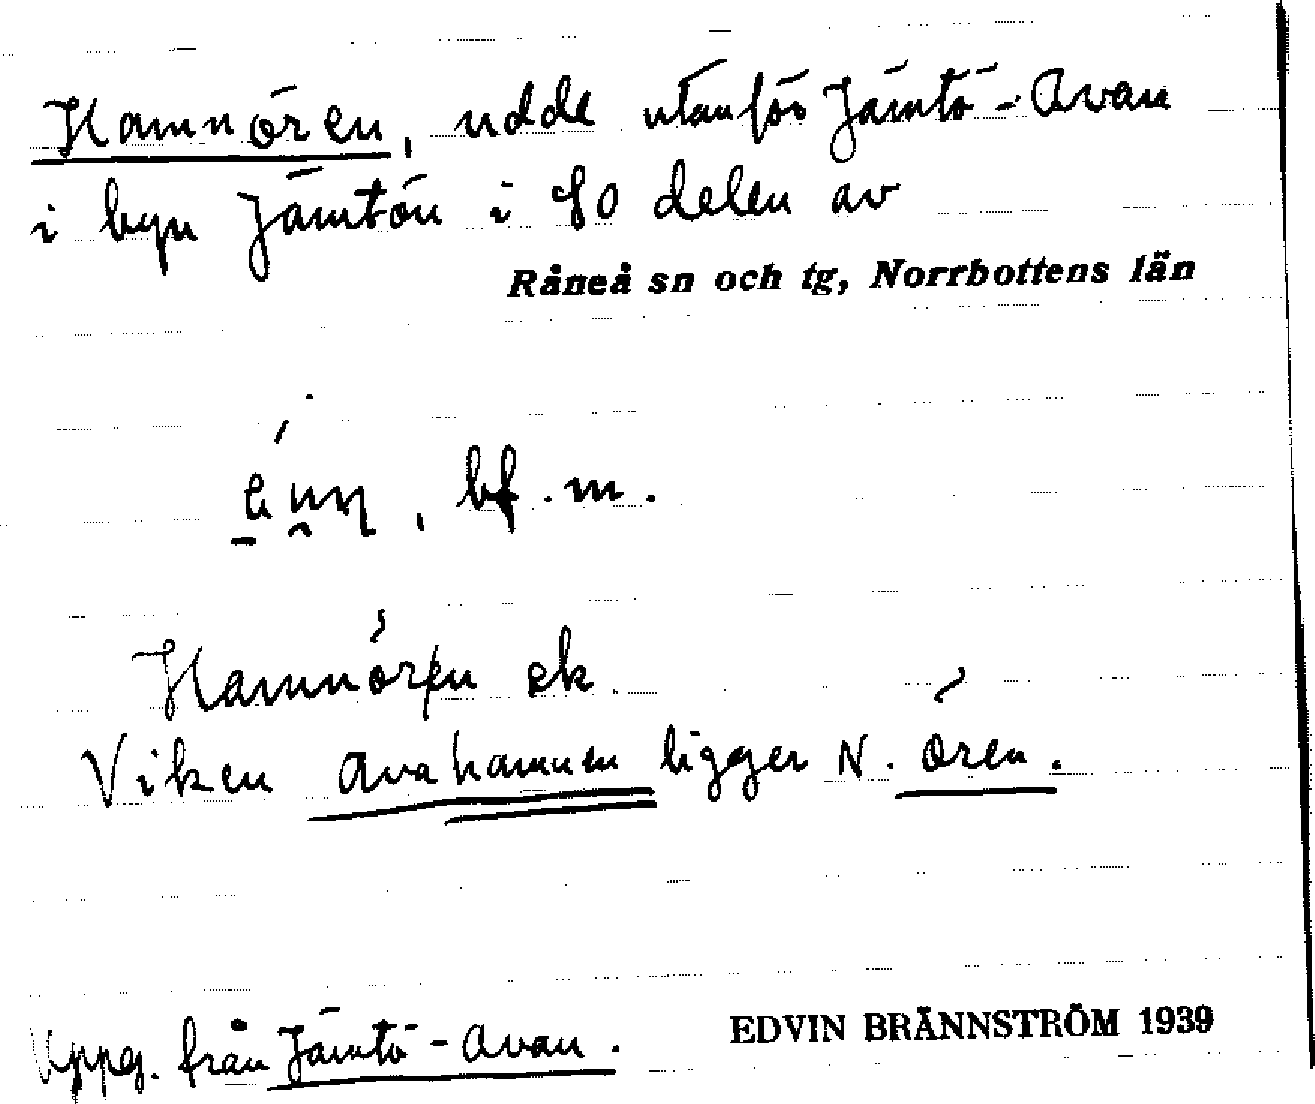 Hamnören, udde utanför Jämtö-Avan
i byn Jämtön i SO delen av
Råneå sn och tg, Norrbottens län
, bf. m.
Hamnören ek
Viken Avahamnen ligger N. Ören.
Uppg. från Jämtö-Avan.
EDVIN BRÄNNSTRÖM 1939